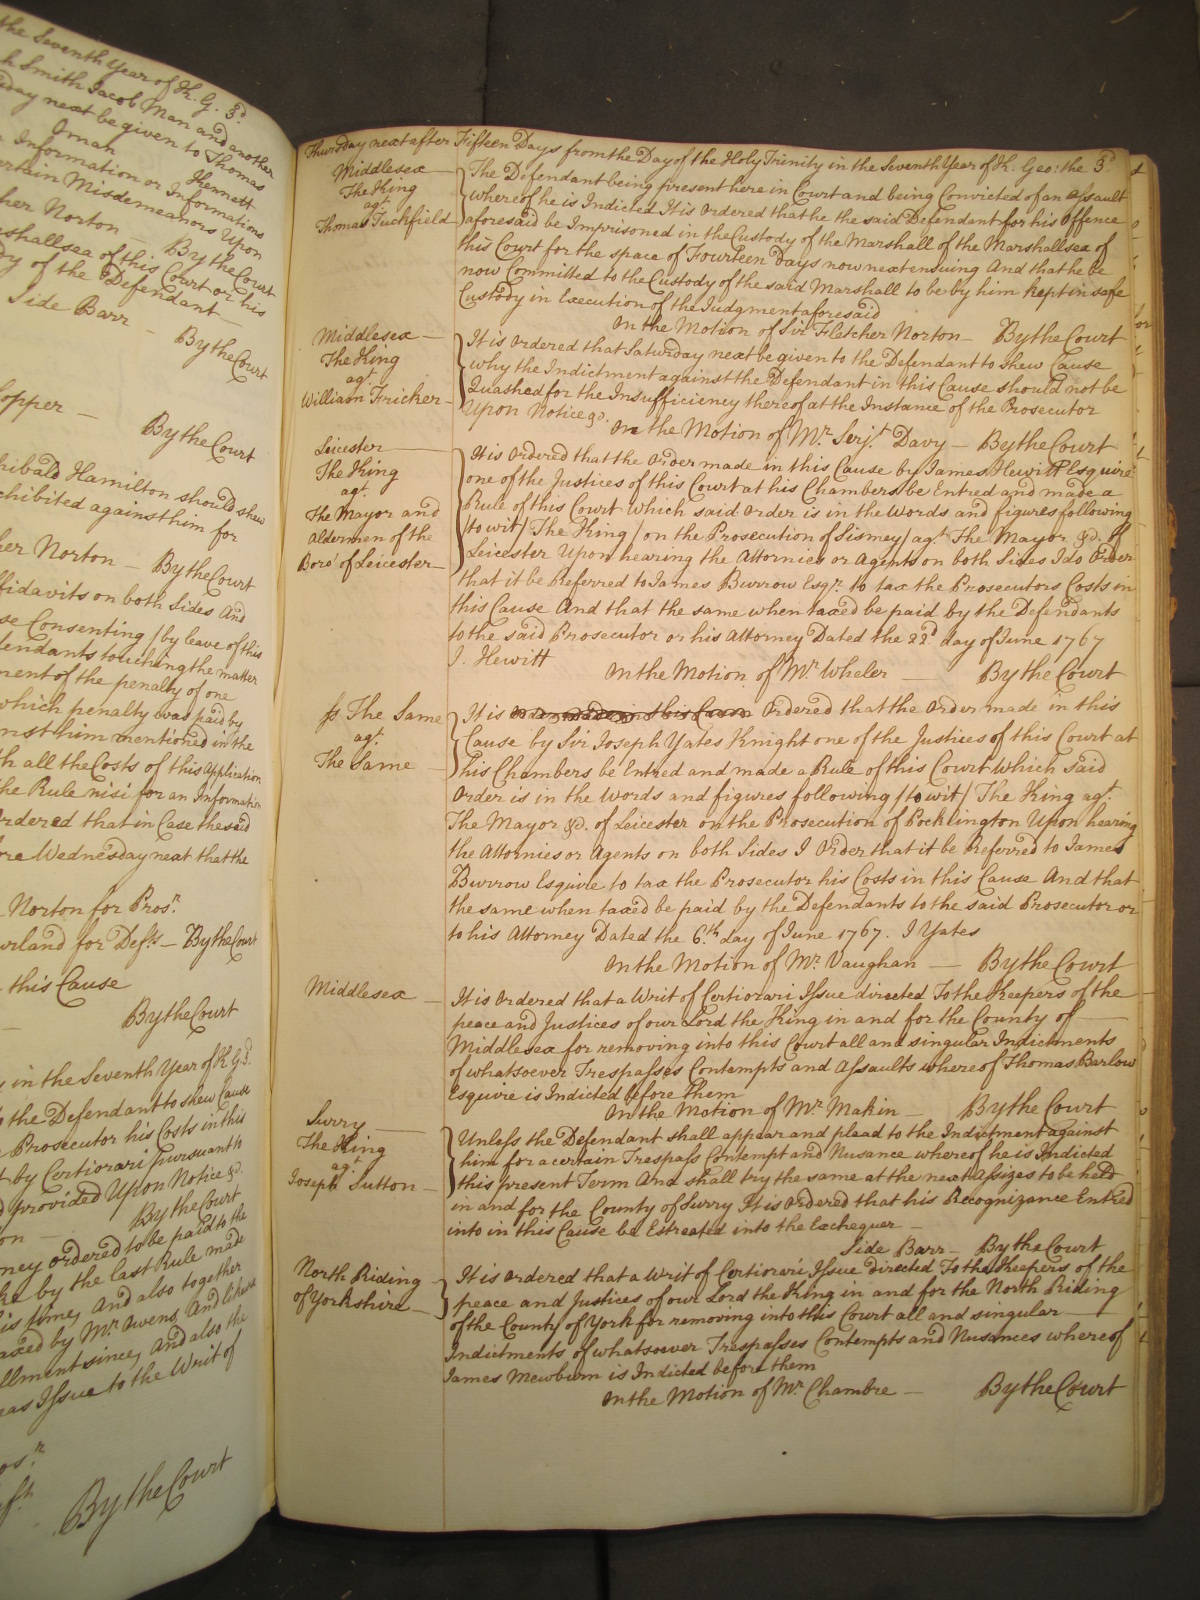 the Seventh Year of K. G. 3d.
Smith Jacob Man and another
day next be given to Thomas
Oman Kennett
Information or Informations
certain Misdemeanors Upon
her Norton — By the Court
Marshallsea of this Court or his
Body of the Defendant
Side Barr — By the Court
opper —
By the Court
Archibald Hamilton should shew
exhibited against him for
her Norton — By the Court
Affidavits on both Sides And
se Consenting / by leave of this
Defendants touching the matter
ment of the penalty of one
which penalty was paid by
against him mentioned in the
with all the Costs of this Application
the Rule nisi for an Information
Ordered that in Case the said
before Wednesday next that the
Norton for Prosr.
for Defts — By the Court
this Cause
By the Court
in the Seventh Year of K. G. 3d.
to the Defendant to shew Cause
Prosecutor his Costs in this
by Certiorari pursuant to
provided Upon Notice &c.
on — By the Court
money ordered to be paid to the
by the last Rule made
his time, And also together
taxed by Mr. Owens, And likewise
since, And also the
Issue to the Writ of
By the Court
Thursday next after Fifteen Days from the Day of the Holy Trinity in the Seventh Year of K. Geo: the 3d.
Middlesex —
The King
agt.
Thomas Tuckfield —
The Defendant being present here in Court and being Convicted of an Assault
whereof he is Indicted It is Ordered that he the said Defendant for his Offence
aforesaid be Imprisoned in the Custody of the Marshall of the Marshallsea of
this Court for the space of Fourteen Days now next ensuing And that he be
now Committed to the Custody of the said Marshall to be by him kept in safe
Custody in Execution of the Judgment aforesaid
On the Motion of Sir Fletcher Norton — By the Court
Middlesex —
The King
agt.
William Fricker —
It is Ordered that Saturday next be given to the Defendant to shew Cause
why the Indictment against the Defendant in this Cause should not be
Quashed for the Insufficiency thereof at the Instance of the Prosecutor
Upon Notice &c.
On the Motion of Mr. Serjt. Davy — By the Court
Leicester —
The King
agt.
The Mayor and
Aldermen of the
Boro' of Leicester —
It is Ordered that the Order made in this Cause by James Hewitt Esquire
one of the Justices of this Court at his Chambers be Entred and made a
Rule of this Court Which said Order is in the Words and figures following
/to wit/ The King / on the Prosecution of Sismey / agt. The Mayor &c. of
Leicester Upon hearing the Attornies or Agents on both Sides I do Order
that it be Referred to James Burrow Esqr. to tax the Prosecutors Costs in
this Cause And that the same when taxed be paid by the Defendants
to the said Prosecutor or his Attorney Dated the 22d. day of June 1767
J. Hewitt
On the Motion of Mr. Wheler — By the Court
ss The Same
agt.
The Same —
It is Order made in this Cause Ordered that the Order made in this
Cause by Sir Joseph Yates Knight one of the Justices of this Court at
his Chambers be Entred and made a Rule of this Court Which said
Order is in the Words and figures following /to wit/ The King agt.
The Mayor &c. of Leicester on the Prosecution of Pocklington Upon hearing
the Attornies or Agents on both Sides I Order that it be Referred to James
Burrow Esquire to tax the Prosecutor his Costs in this Cause And that
the same when taxed be paid by the Defendants to the said Prosecutor or
to his Attorney Dated the 6.th day of June 1767. J Yates
On the Motion of Mr. Vaughan — By the Court
Middlesex —
It is Ordered that a Writ of Certiorari Issue directed To the Keepers of the
peace and Justices of our Lord the King in and for the County of —
Middlesex for removing into this Court all and singular Indictments
of whatsoever Trespasses Contempts and Assaults whereof Thomas Barlow
Esquire is Indicted before them
On the Motion of Mr. Makin — By the Court
Surry —
The King
agt.
Joseph Sutton —
Unless the Defendant shall appear and plead to the Indictment against
him for a certain Trespass Contempt and Nusance whereof he is Indicted
this present Term And shall try the same at the next Assizes to be held
in and for the County of Surry It is Ordered that his Recognizance Entred
into in this Cause be Estreated into the Exchequer —
Side Barr — By the Court
North Riding
of Yorkshire —
It is Ordered that a Writ of Certiorari Issue directed To the Keepers of the
peace and Justices of our Lord the King in and for the North Riding
of the County of York for removing into this Court all and singular —
Indictments of whatsoever Trespasses Contempts and Nusances whereof
James Mewburn is Indicted before them
On the Motion of Mr. Chambre — By the Court